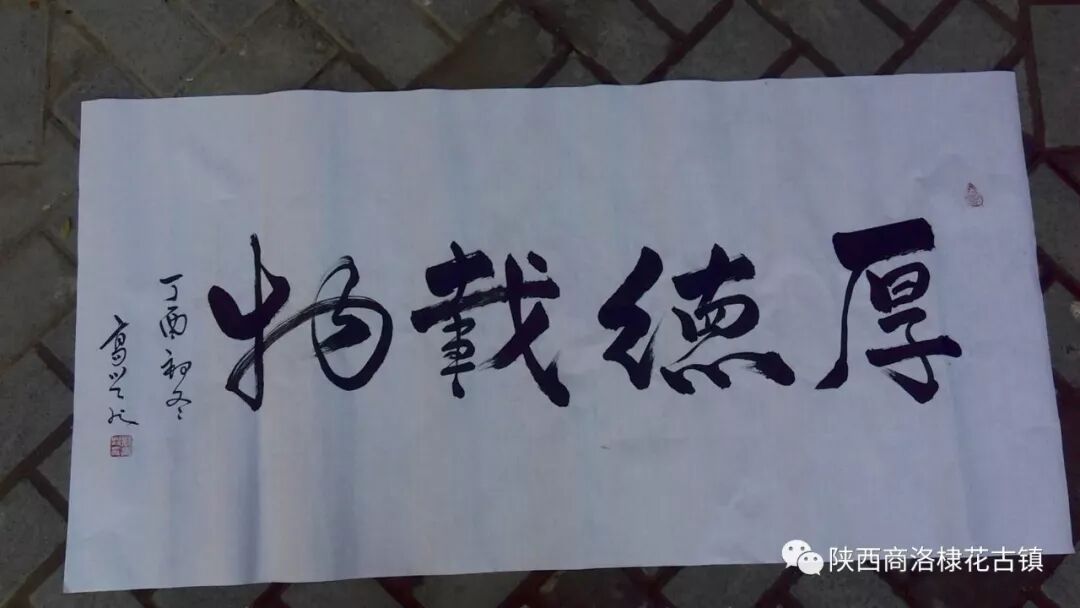 厚德載物
丁酉初冬
陕西商洛棣花古镇